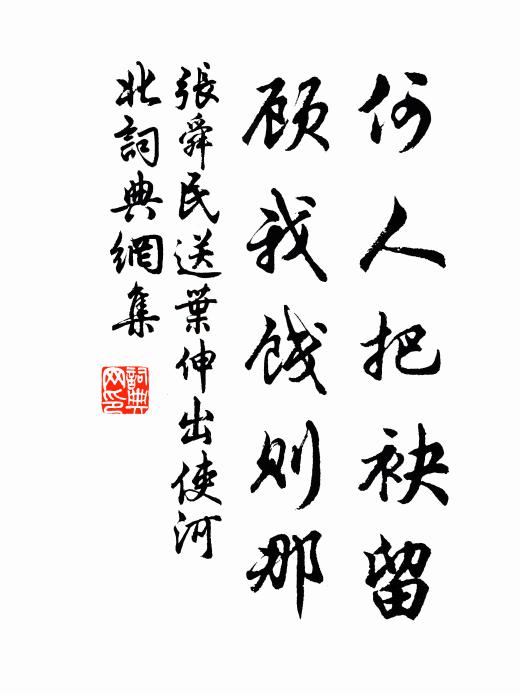 何人把袂留
顾我饯则那
張舜民送葉伸出使河
北詞典網集
詞典网印